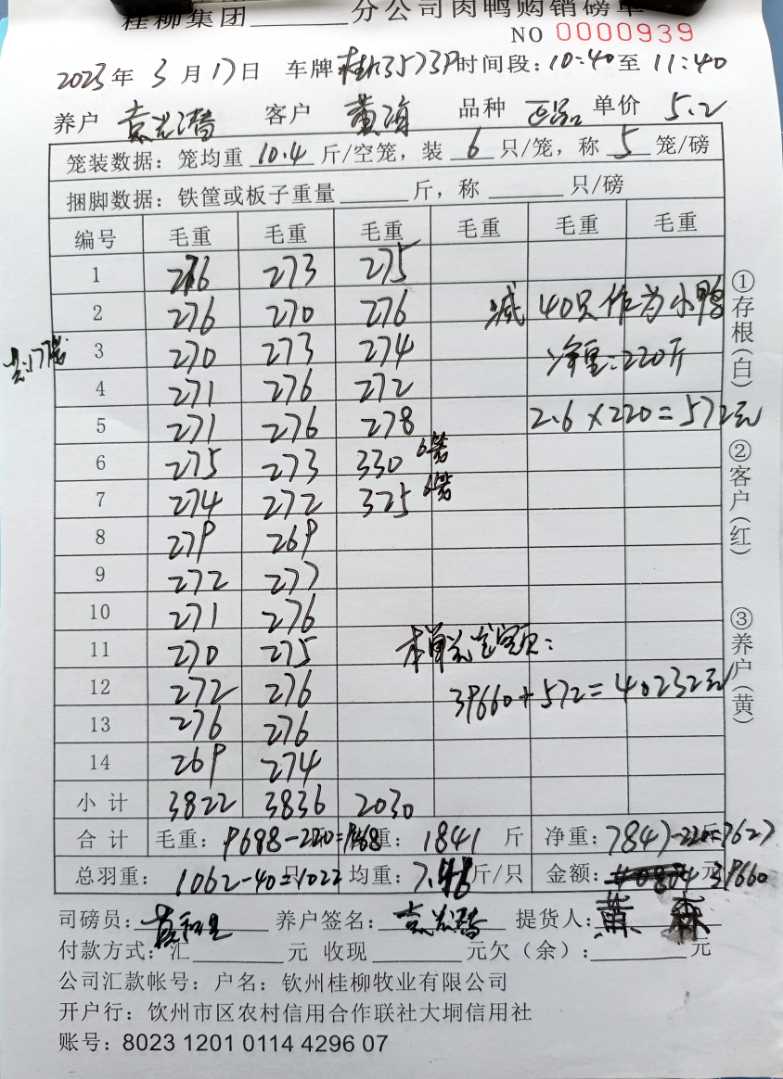 桂柳集团______分公司肉鸭购销磅单
NO 0000939
2023年 3月17日 车牌 桂N3573P 时间段：10:40至 11:40
养户 客户 黄 品种 单价 5.2
笼装数据：笼均重 10.4 斤/空笼，装 6 只/笼，称 5 笼/磅
捆脚数据：铁筐或板子重量______斤，称______只/磅
编号 毛重 毛重 毛重 毛重 毛重 毛重
1 276 273 275
2 276 270 276 减 40只作为小鸭
3 270 273 274 净重：220斤
共177笼
4 271 276 272
5 271 276 278 2.6×220=572元
6 275 273 330 6笼
7 274 272 325 6笼
8 279 269
9 272 277
10 271 276
11 270 275 本单总金额：
12 272 276 39660+572=40232元
13 276 276
14 269 274
小计 3822 3836 2030
合计 毛重：9688-220=9468 重：1841 斤 净重：7847-220=7627
总羽重：1062-40=1022 只 均重：7.46斤/只 金额： 元 39660
司磅员： 养户签名： 提货人：黄森
付款方式：汇______元 收现______元欠（余）：______元
公司汇款帐号：户名：钦州桂柳牧业有限公司
开户行：钦州市区农村信用合作联社大垌信用社
账号：8023 1201 0114 4296 07
①存根(白)
②客户(红)
③养户(黄)